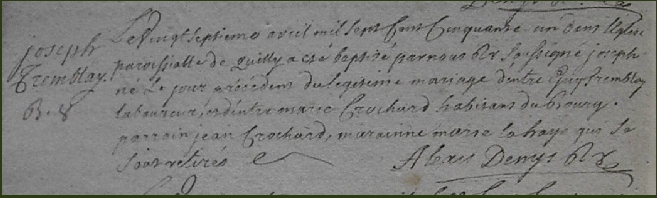 joseph
Tremblay
B. 8
Le vingt septieme avril mil sept cent cinquante-un dans l'eglise
paroissialle de Quilly a eté baptisé par nous ptr soussigné joseph
né le jour précédent du legitime mariage d'entre Guy tremblay
laboureur, et d'entre marie Crochard habitans du bourg.
parrain jean Crochard, maraine marie la haye qui se
sont retirés
Alexis Denys ptr